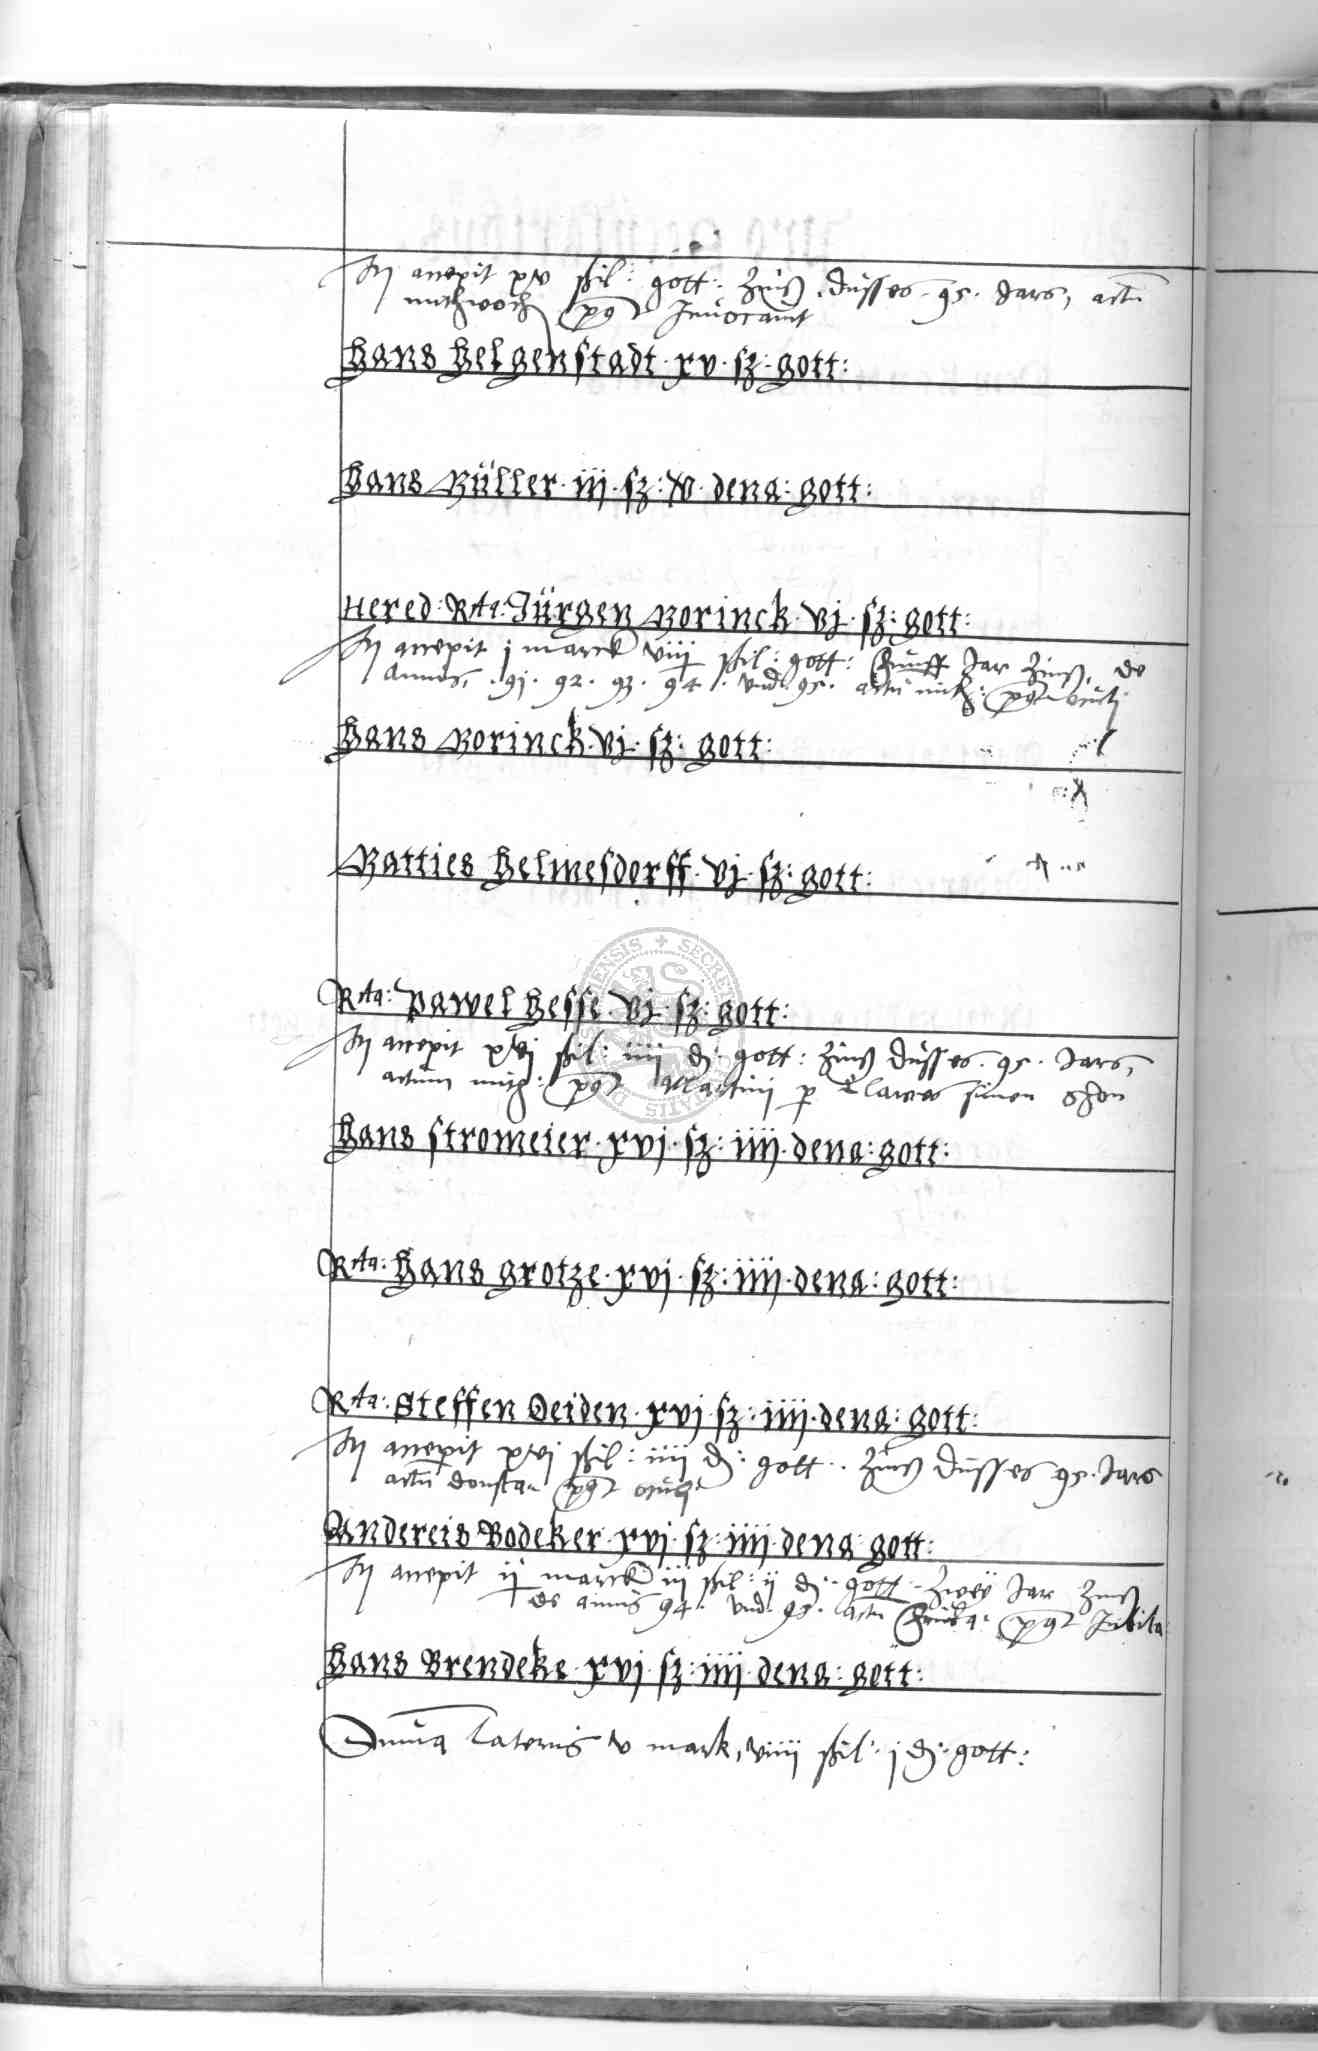 accepit xv schil: gott: Zinß dusses 95. Jars, actu
mithwoch post Invocavit
Hans Helgenstadt · xv · sz: gott:
Hans Müller · iij · sz: v · dena: gott:
Hered: Rta: Jürgen Morinck · vj · sz: gott:
accepit j marck viiij schil: gott: funff Jar Zinß, de
Annis, 91. 92. 93. 94. vnd 95. actu mith: post
Hans Morinck · vj · sz: gott:
Matties Helmesdorff · vj · sz: gott:
Rta: Pawel Hesse · vj · sz: gott:
accepit xvj schil: iiij d: gott: Zinß dusses 95. Jars,
actum mith: post Martini p Clawes sinen shon
Hans Stromeier · xvj · sz: iiij · dena: gott:
Rta: Hans Grotze · xvj · sz: iiij · dena: gott:
Rta: Steffen Deiden · xvj · sz: iiij · dena: gott:
accepit xvj schil: iiij d: gott: Zinß dusses 95. Jars
actu post
Andereis Bodeker · xvj · sz: iiij · dena: gott:
accepit ij marck iij schil: ij d: gott: Zwey Jar Zinß
de annis 94. vnd 95. actu post Jubila:
Hans Brendeke · xvj · sz: iiij · dena: gott:
Suma Lateris v mark, viiij schil: j d: gott: